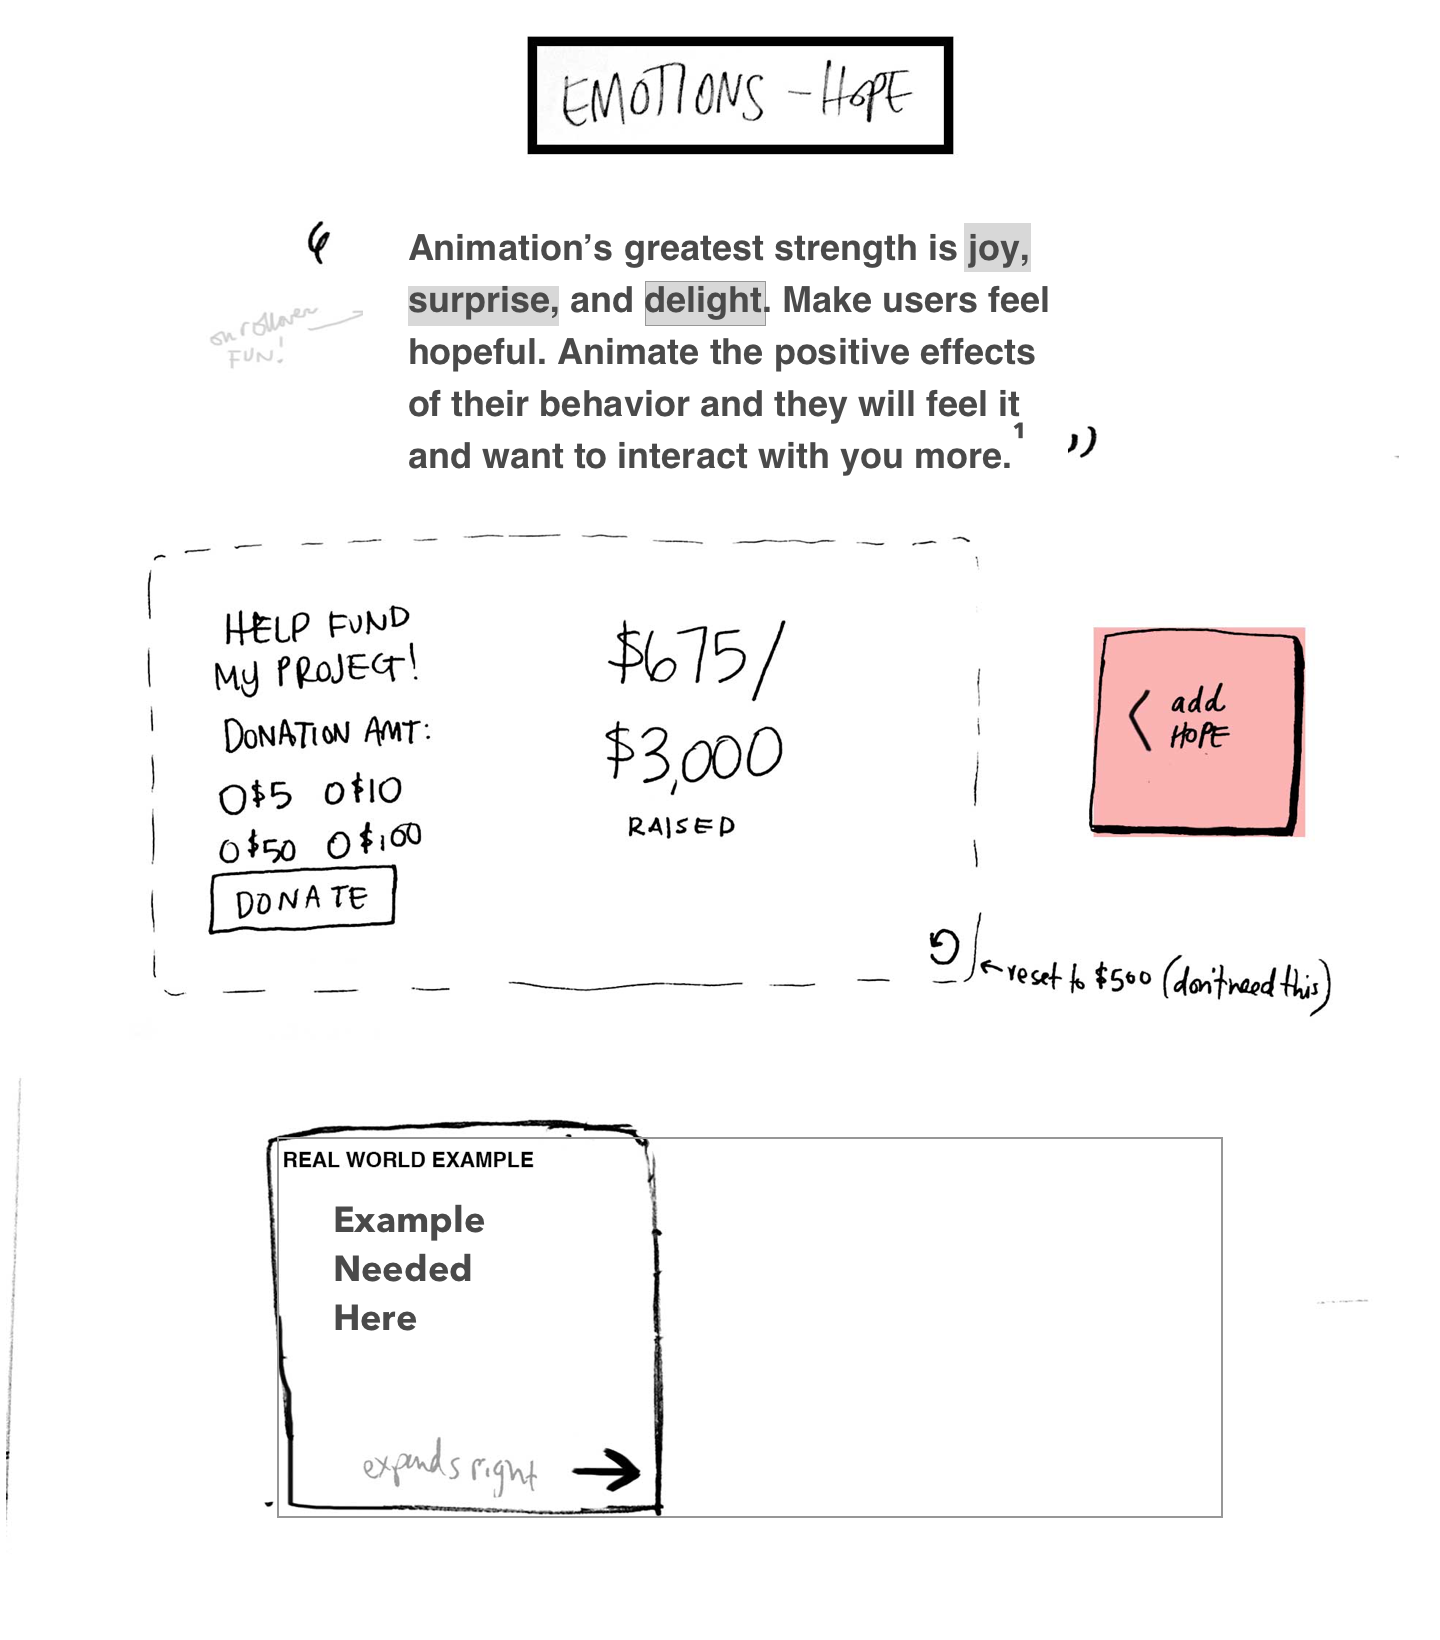 EMOTIONS - HOPE
“
Animation’s greatest strength is joy,
surprise, and delight. Make users feel
hopeful. Animate the positive effects
of their behavior and they will feel it
and want to interact with you more.1
”
on rollover
FUN!
HELP FUND
MY PROJECT!
DONATION AMT:
O $5 O $10
O $50 O $100
DONATE
$675/
$3,000
RAISED
< add
HOPE
← reset to $500 (don't need this)
REAL WORLD EXAMPLE
Example
Needed
Here
expands right →